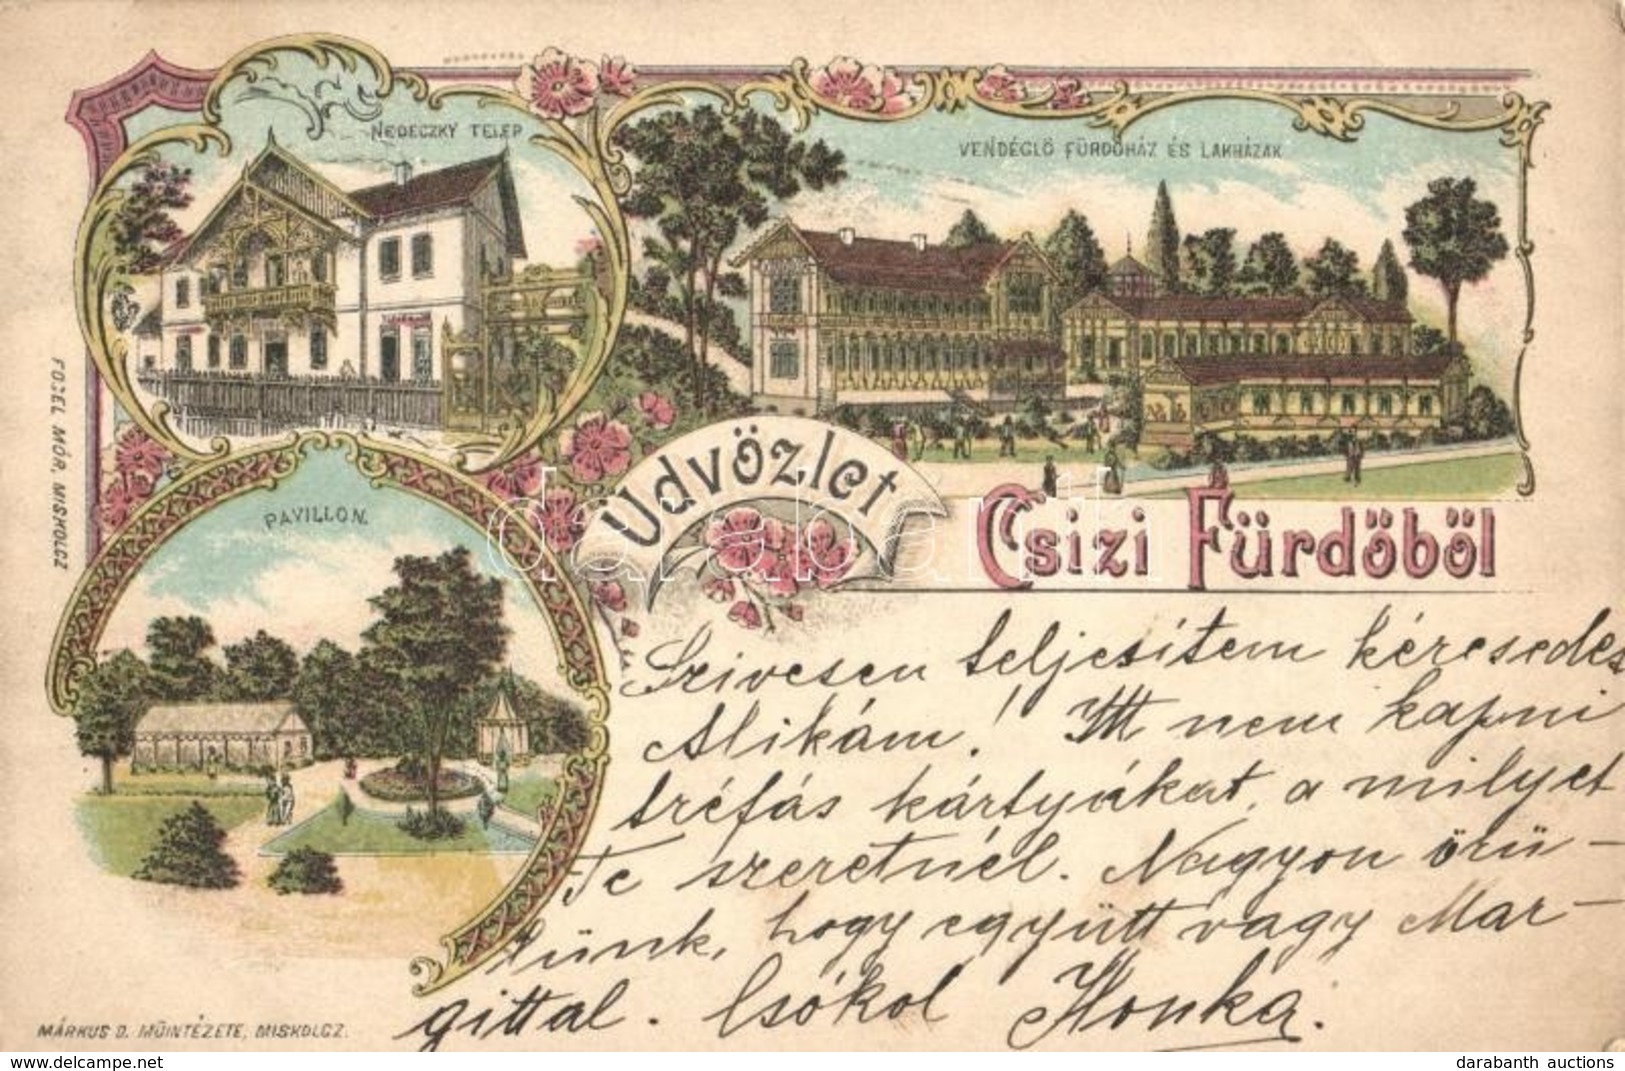 NEDECZKY TELEP
VENDÉGLŐ FÜRDŐHÁZ ÉS LAKHÁZAK
Üdvözlet
Csizi Fürdőből
PAVILLON.
FOGEL MÓR, MISKOLCZ
Szivesen teljesitem kérésedet
Alikám! Itt nem kapni
tréfás kártyákat, a milyet
Te szeretnél. Nagyon örü-
lünk, hogy együtt vagy Mar-
gittal. Csókol Ilonka.
MÁRKUS D. MŰINTÉZETE, MISKOLCZ.
darabanth
darabanth auctions